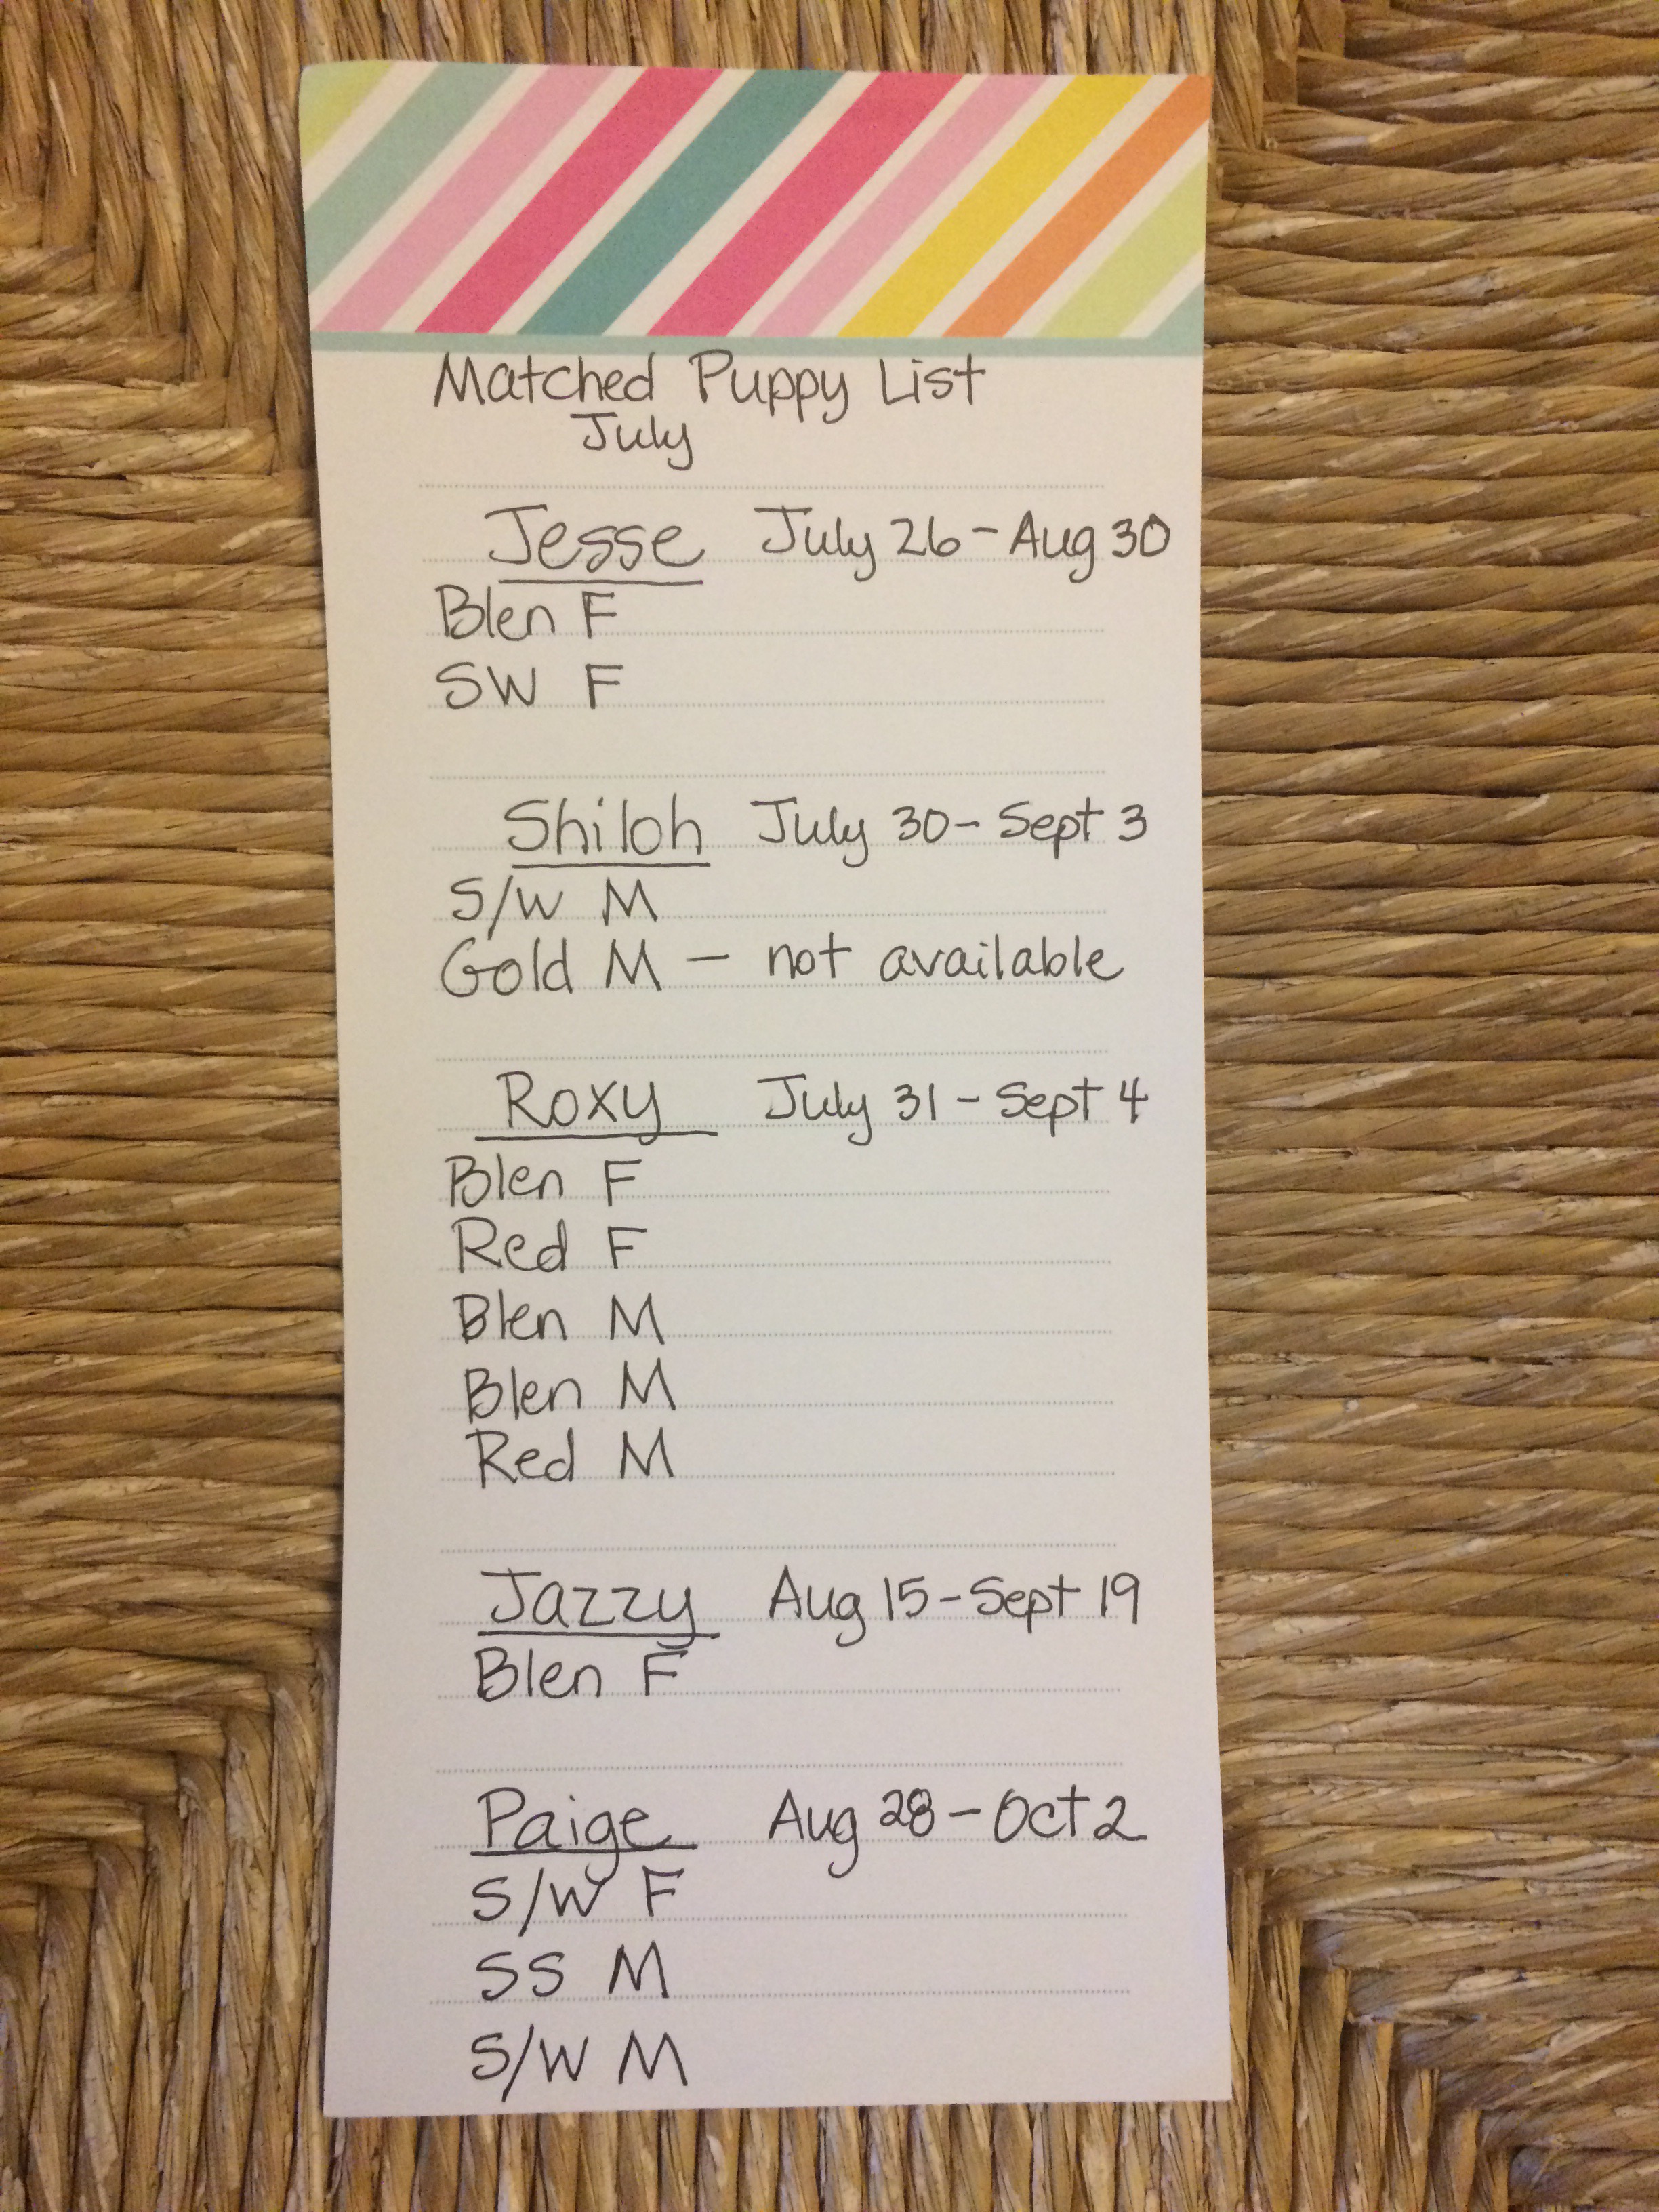 Matched Puppy List
July
Jesse July 26 - Aug 30
Blen F
SW F
Shiloh July 30 - Sept 3
S/W M
Gold M - not available
Roxy July 31 - Sept 4
Blen F
Red F
Blen M
Blen M
Red M
Jazzy Aug 15 - Sept 19
Blen F
Paige Aug 28 - Oct 2
S/W F
SS M
S/W M